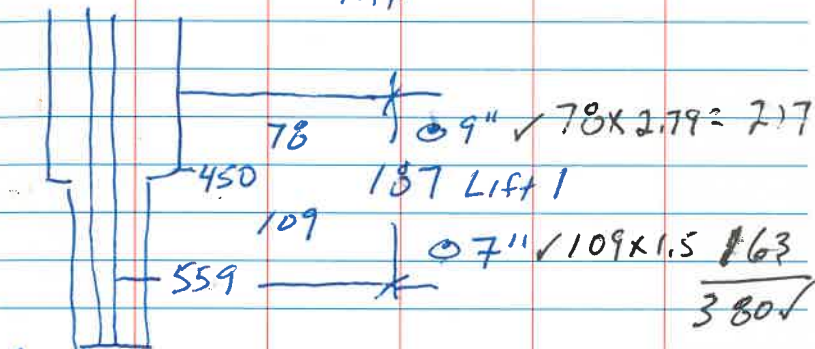 78 ⌀ 9" ✓ 78 x 2.79 = 217
450 187 Lift 1
109
⌀ 7" ✓ 109 x 1.5 163
559
380 ✓